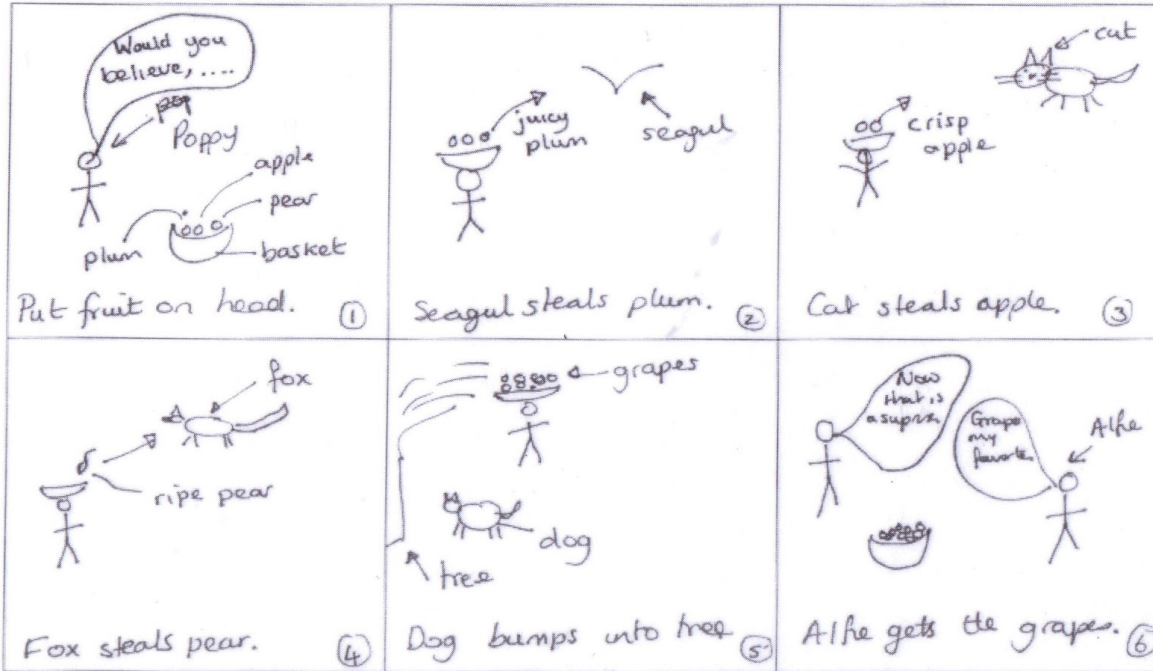 Would you
believe, ....
pop
Poppy
apple
pear
plum
basket
Put fruit on head. 1
juicy
plum
seagul
Seagul steals plum. 2
cat
crisp
apple
Cat steals apple. 3
fox
ripe pear
Fox steals pear. 4
grapes
dog
tree
Dog bumps into tree 5
Now
that is
a suprize
Grapes
my
favorite
Alfie
Alfie gets the grapes. 6